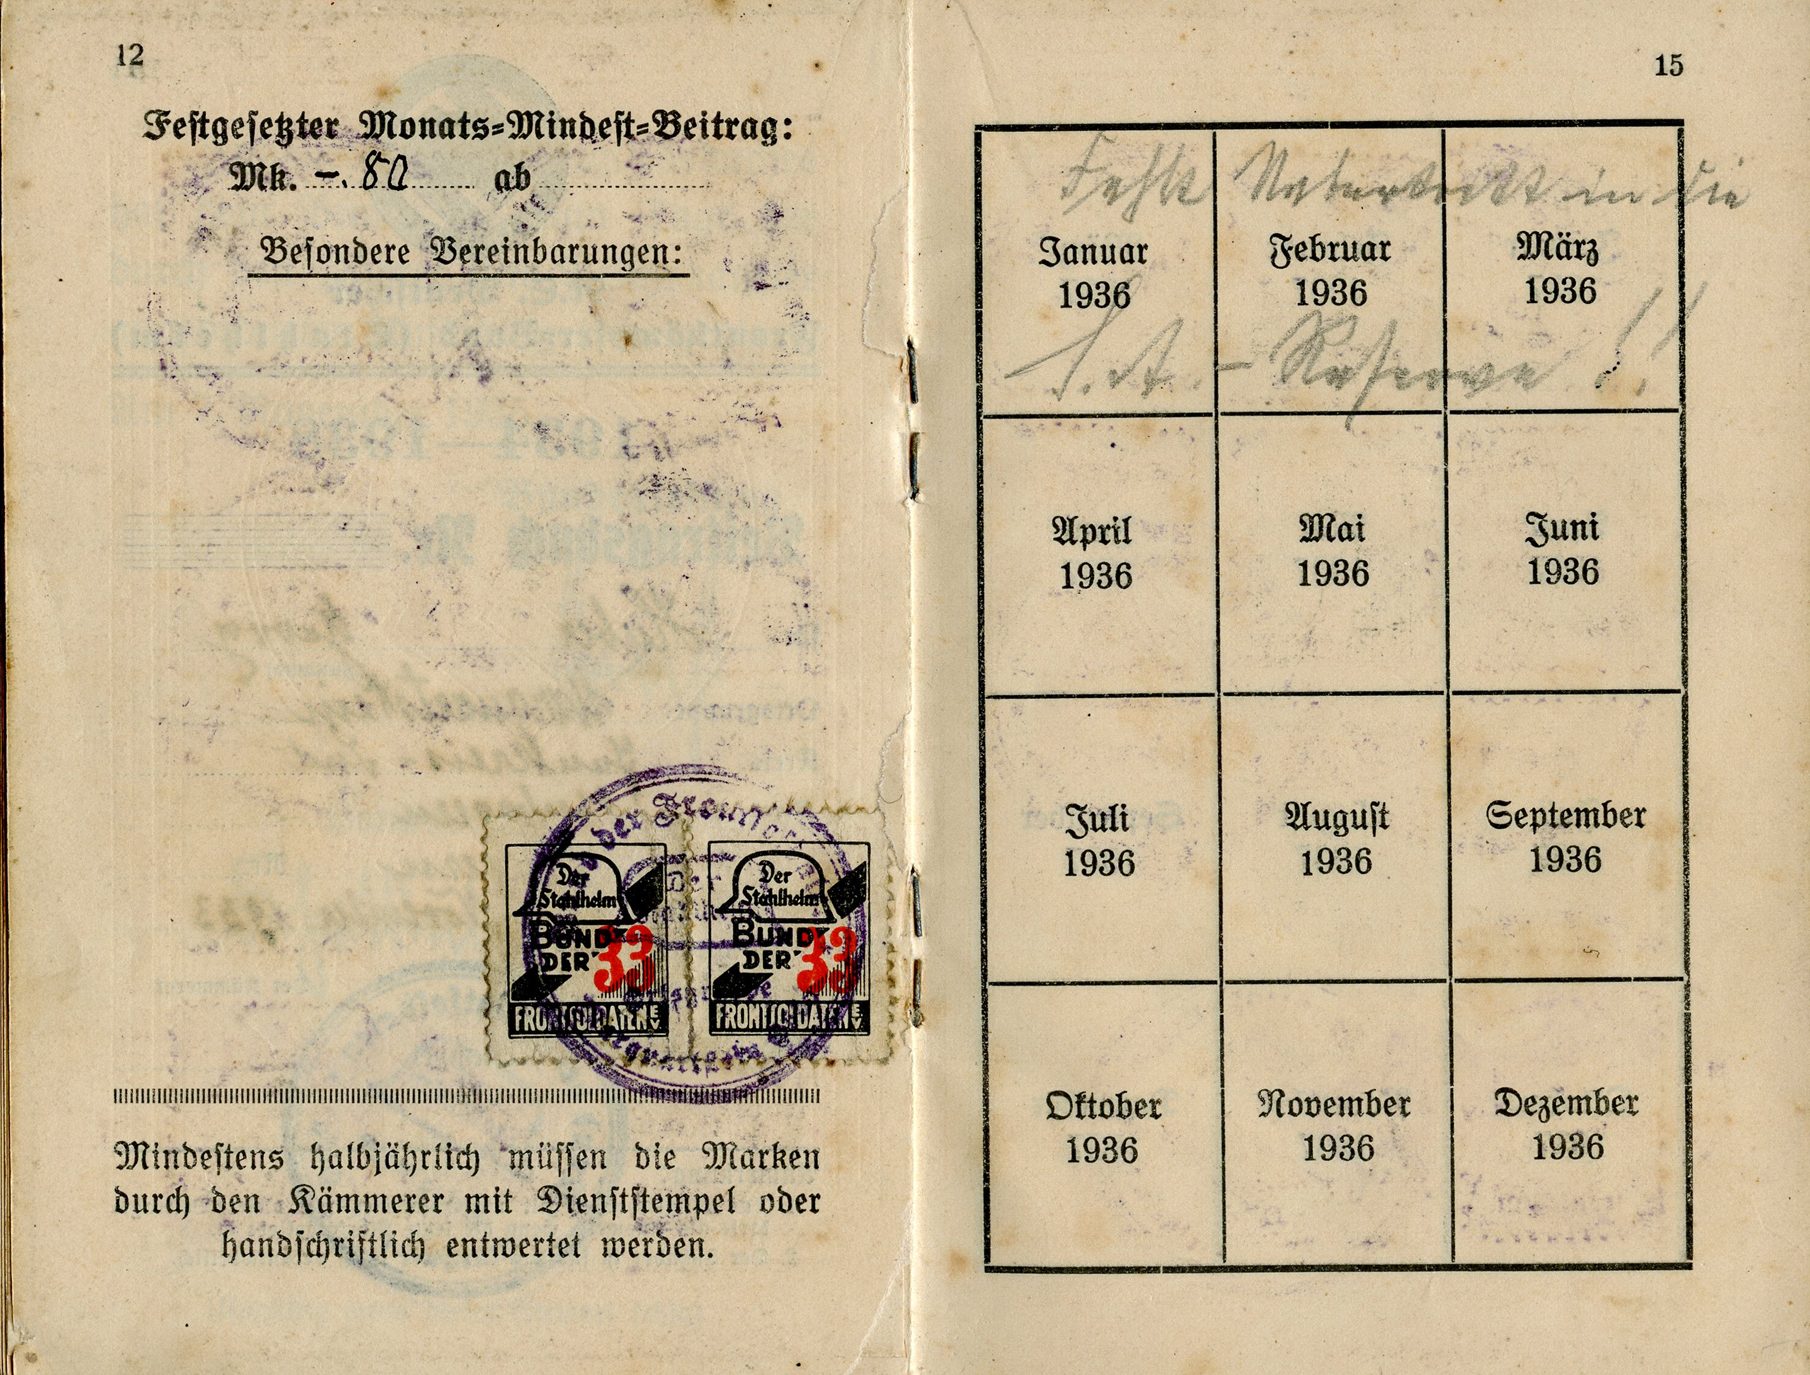 12
Festgesetzter Monats-Mindest-Beitrag:
Mk. -.80 ab
Besondere Vereinbarungen:
Der
Stahlhelm
BUND
DER
33
FRONTSOLDATEN E.V.
Der
Stahlhelm
BUND
DER
33
FRONTSOLDATEN E.V.
der
Mindestens halbjährlich müssen die Marken
durch den Kämmerer mit Dienststempel oder
handschriftlich entwertet werden.
15
Fehlt in die
Januar
1936
Februar
1936
März
1936
S.A. - Reserve !!
April
1936
Mai
1936
Juni
1936
Juli
1936
August
1936
September
1936
Oktober
1936
November
1936
Dezember
1936